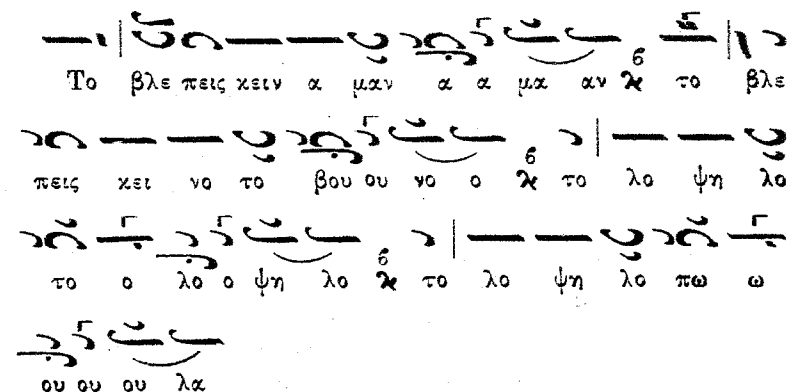 Το βλε πεις κειν α μαν α α μα αν το βλε
πεις κει νο το βου ου νο ο το λο ψη λο
το ο λο ο ψη λο το λο ψη λο πω ω
ου ου ου λα